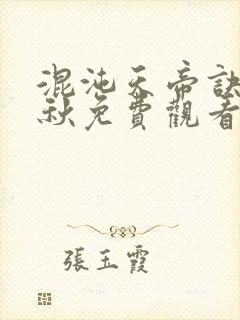 混沌天帝訣
秋免費觀看
張玉霞